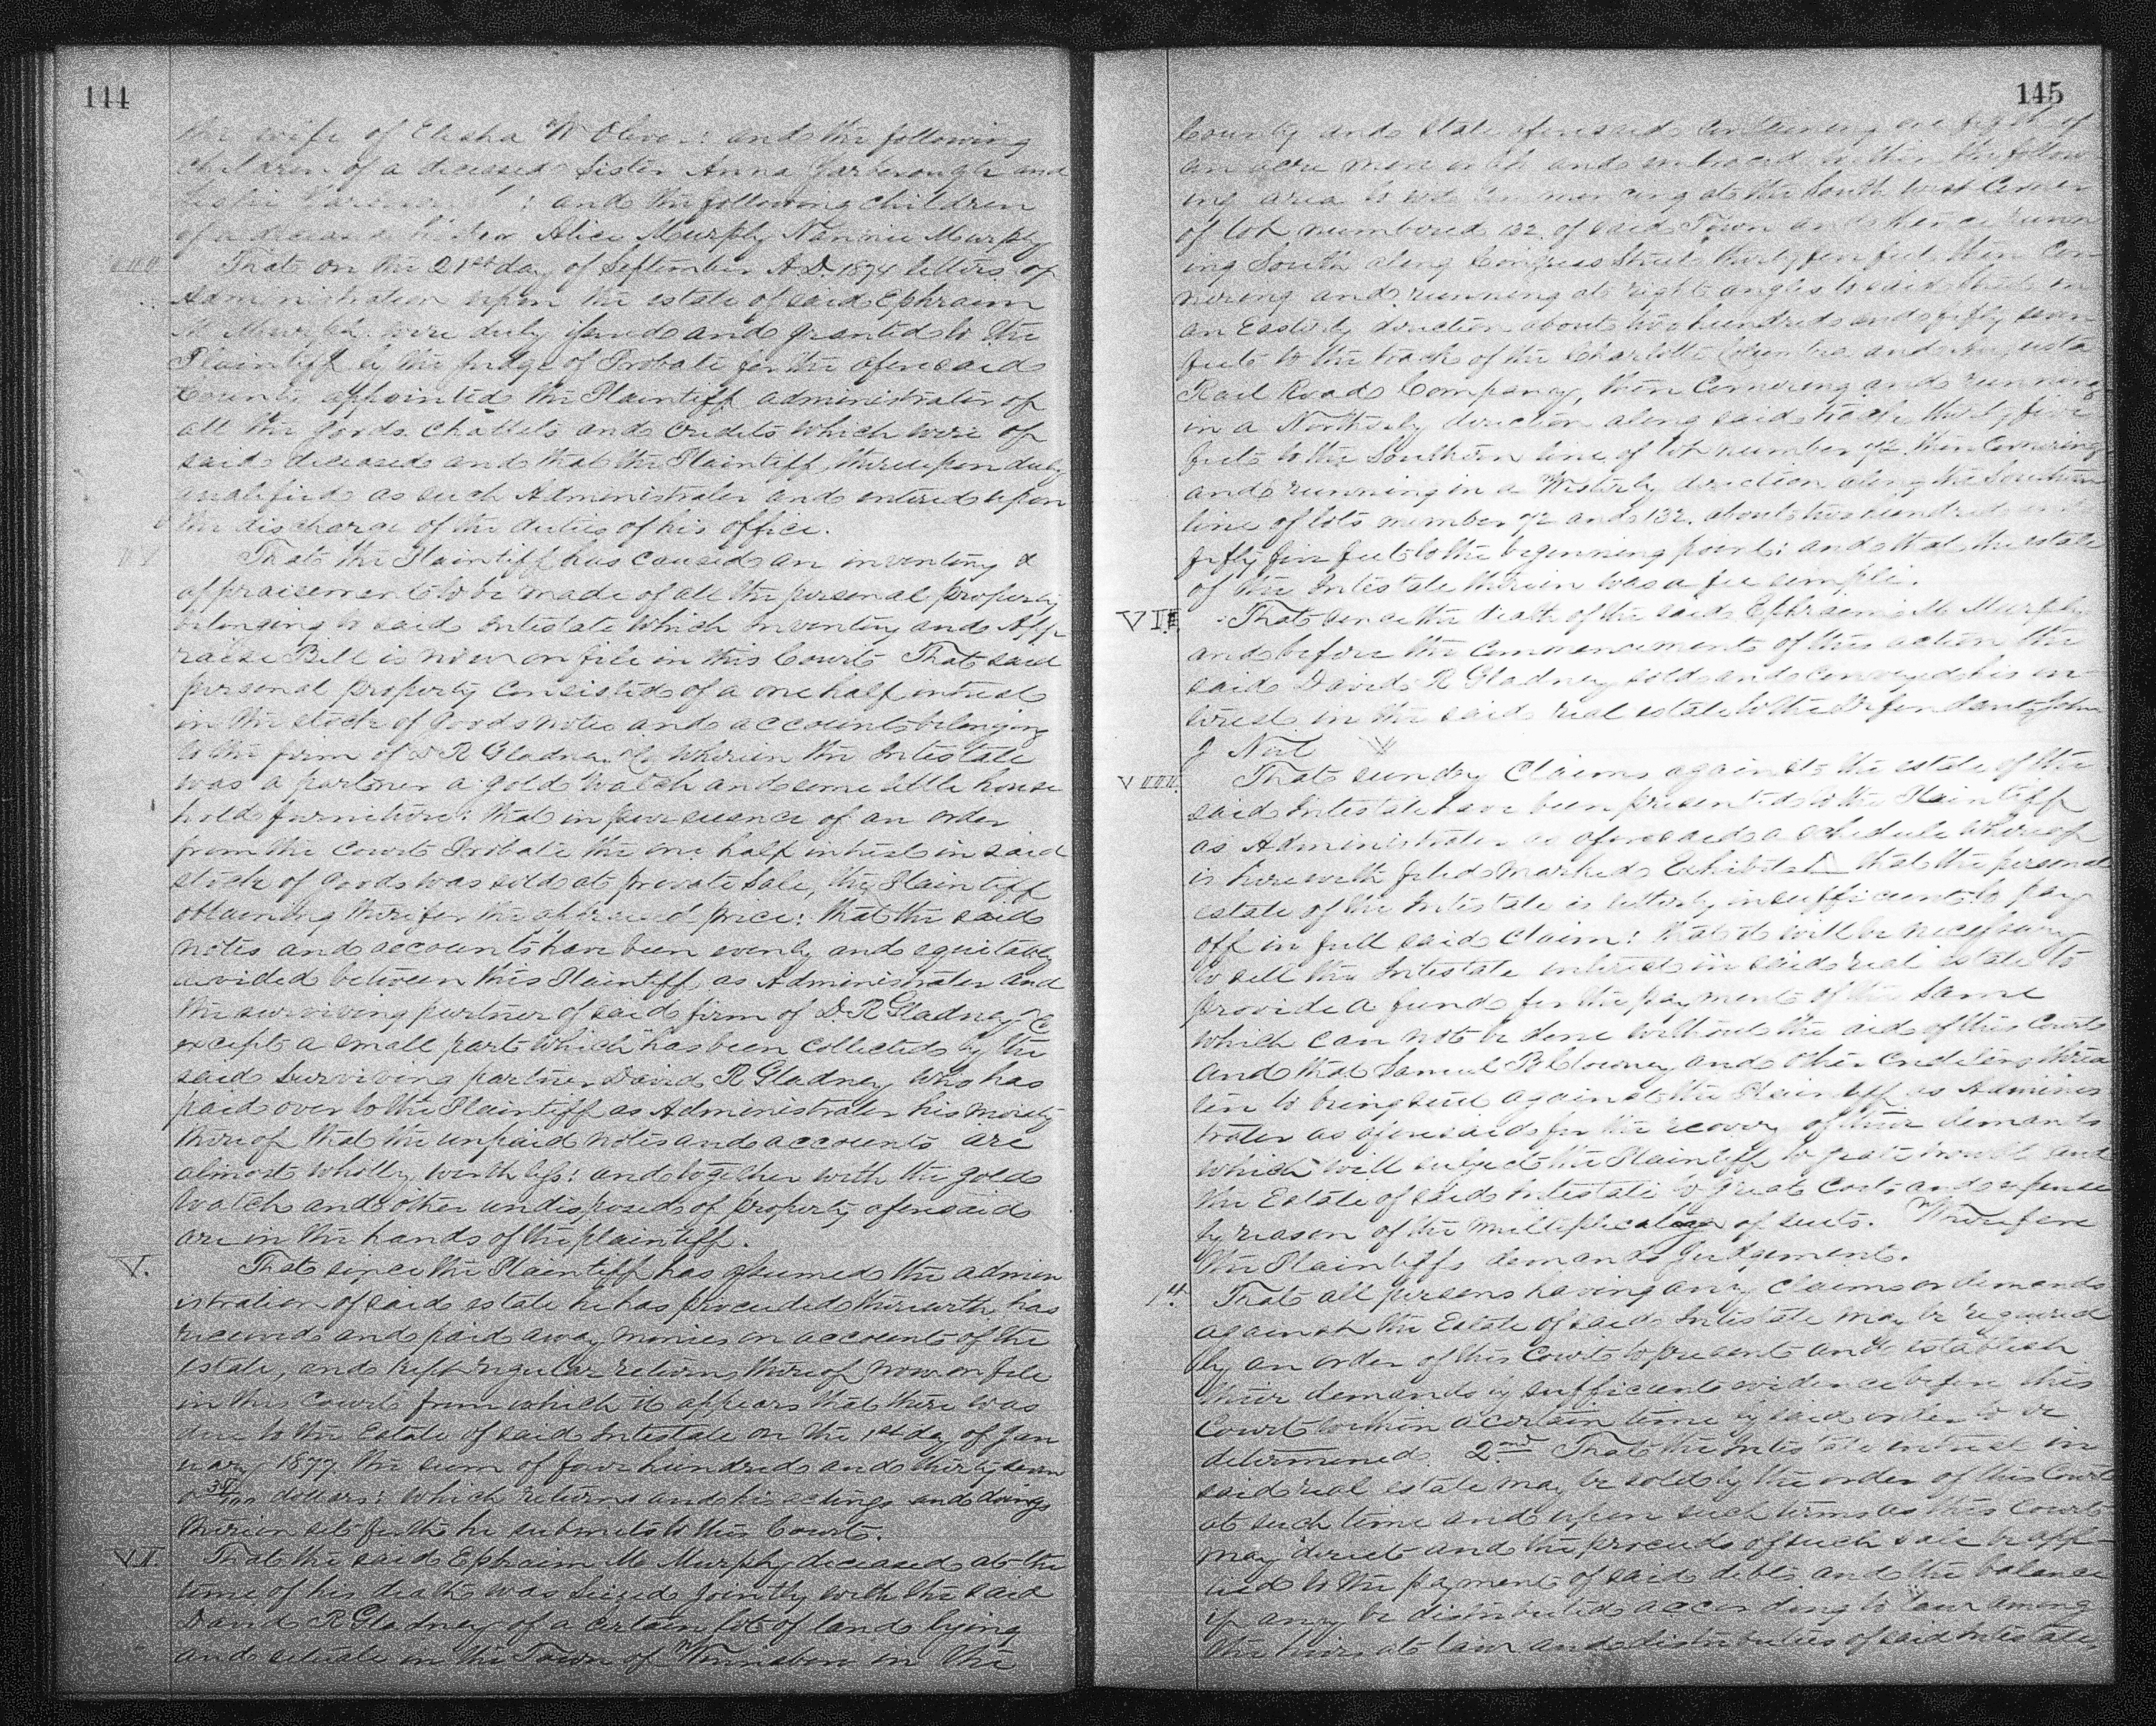 144
the wife of Elisha W Olive : and the following
children of a deceased Sister Anna Yarborough and
: and the following children
of a deceased Alice Murphy Nannie Murphy
III
That on the 21st day of September A.D. 1874 letters of
Administration upon the estate of said Ephraim
M Murphy were duly issued and granted to the
Plaintiff by the judge of Probate for the aforesaid
County appointed the Plaintiff administrator of
all the goods chattels and credits which were of
said deceased and that the Plaintiff thereupon duly
qualified as such Administrator and entered upon
the discharge of the duties of his office.
That the Plaintiff has caused an inventory &
appraisement to be made of all the personal property
belonging to said Intestate which Inventory and App
raise Bill is now on file in this Court That said
personal property consisted of a one half interest
in the stock of goods notes and accounts belonging
to the firm of D R Gladney & Co wherein the Intestate
was a partner a gold watch and some little house
hold furniture: that in pursuance of an order
from the Court Probate the one half interest in said
stock of goods was sold at private sale, the Plaintiff
obtaining therefor the appraised price: that the said
notes and accounts have been evenly and equitably
divided between this Plaintiff as Administrator and
the surviving partner of said firm of D. R Gladney & Co
except a small part which has been collected by the
said surviving partner David R Gladney who has
paid over to the Plaintiff as Administrator his moiety
thereof that the unpaid notes and accounts are
almost wholly worthless: and together with the gold
watch and other undisposed of property aforesaid
are in the hands of the plaintiff.
V.
That since the Plaintiff has assumed the admin
istration of said estate he has proceeded therewith, has
received and paid away monies on account of the
estate, and kept regular returns thereof now on file
in this Court from which it appears that there was
due to the Estate of said Intestate on the 1st day of Jan
uary 1877 the sum of four hundred and thirty seven
dollars: which returns and his actings and doings
therein set forth he submits to this Court.
VI.
That the said Ephraim M. Murphy deceased at the
time of his death was seized jointly with the said
David R Gladney of a certain lot of land lying
and situate in the Town of Winnsboro in the
145
County and State aforesaid containing one eighth of
an acre more or less and embraced within the follow
ing area to wit Commencing at the South West Corner
of lot numbered 132 of said Town and thence runn
ing South along Congress Street thirty five feet, then Cor
nering and running at right angles to said Street in
an Easterly direction about two hundred and fifty seven
feet to the track of the Charlotte Columbia and Augusta
Rail Road Company, then Cornering and running
in a Northerly direction along said track thirty five
feet to the Southern line of lot number 72 then Cornering
and running in a Westerly direction along the Southern
line of lots number 72 and 132. about two hundred and
fifty five feet to the beginning point: and that the estate
of the Intestate therein was a fee simple.
VII
That since the death of the said Ephraim M Murphy
and before the commencement of this action the
said David R Gladney sold and conveyed his in-
terest in the said real estate to the Defendant John
J Neil
VIII.
That sundry Claims against the estate of the
said Intestate have been presented to the Plaintiff
as Administrator as aforesaid a schedule whereof
is herewith filed marked Exhibit A that the personal
estate of the Intestate is utterly insufficient to pay
off in full said claim: that it will be necessary
to sell the Intestate interest in said real estate to
provide a fund for the payment of the same
which can not be done without the aid of this Court
and that Samuel B Clowney and other creditors threa
ten to bring suit against the Plaintiff as Adminis
trator as aforesaid for the recovery of their demands
which will subject the Plaintiff to great trouble and
the Estate of said Intestate to great costs and expense
by reason of the of suits. Wherefore
the Plaintiffs demands judgement.
1st.
That all persons having any claims or demands
against the Estate of said Intestate may be required
by an order of this Court to present and establish
their demands by sufficient evidence before this
Court within a certain time by said order to be
determined. 2nd That the Intestate interest in
said real estate may be sold by the order of this Court
at such time and upon such terms as this Court
may direct and the proceeds of such sale be app-
lied to the payment of said debts and the balance
if any be distributed according to law among
the heirs at law and distributees of said Intestate,